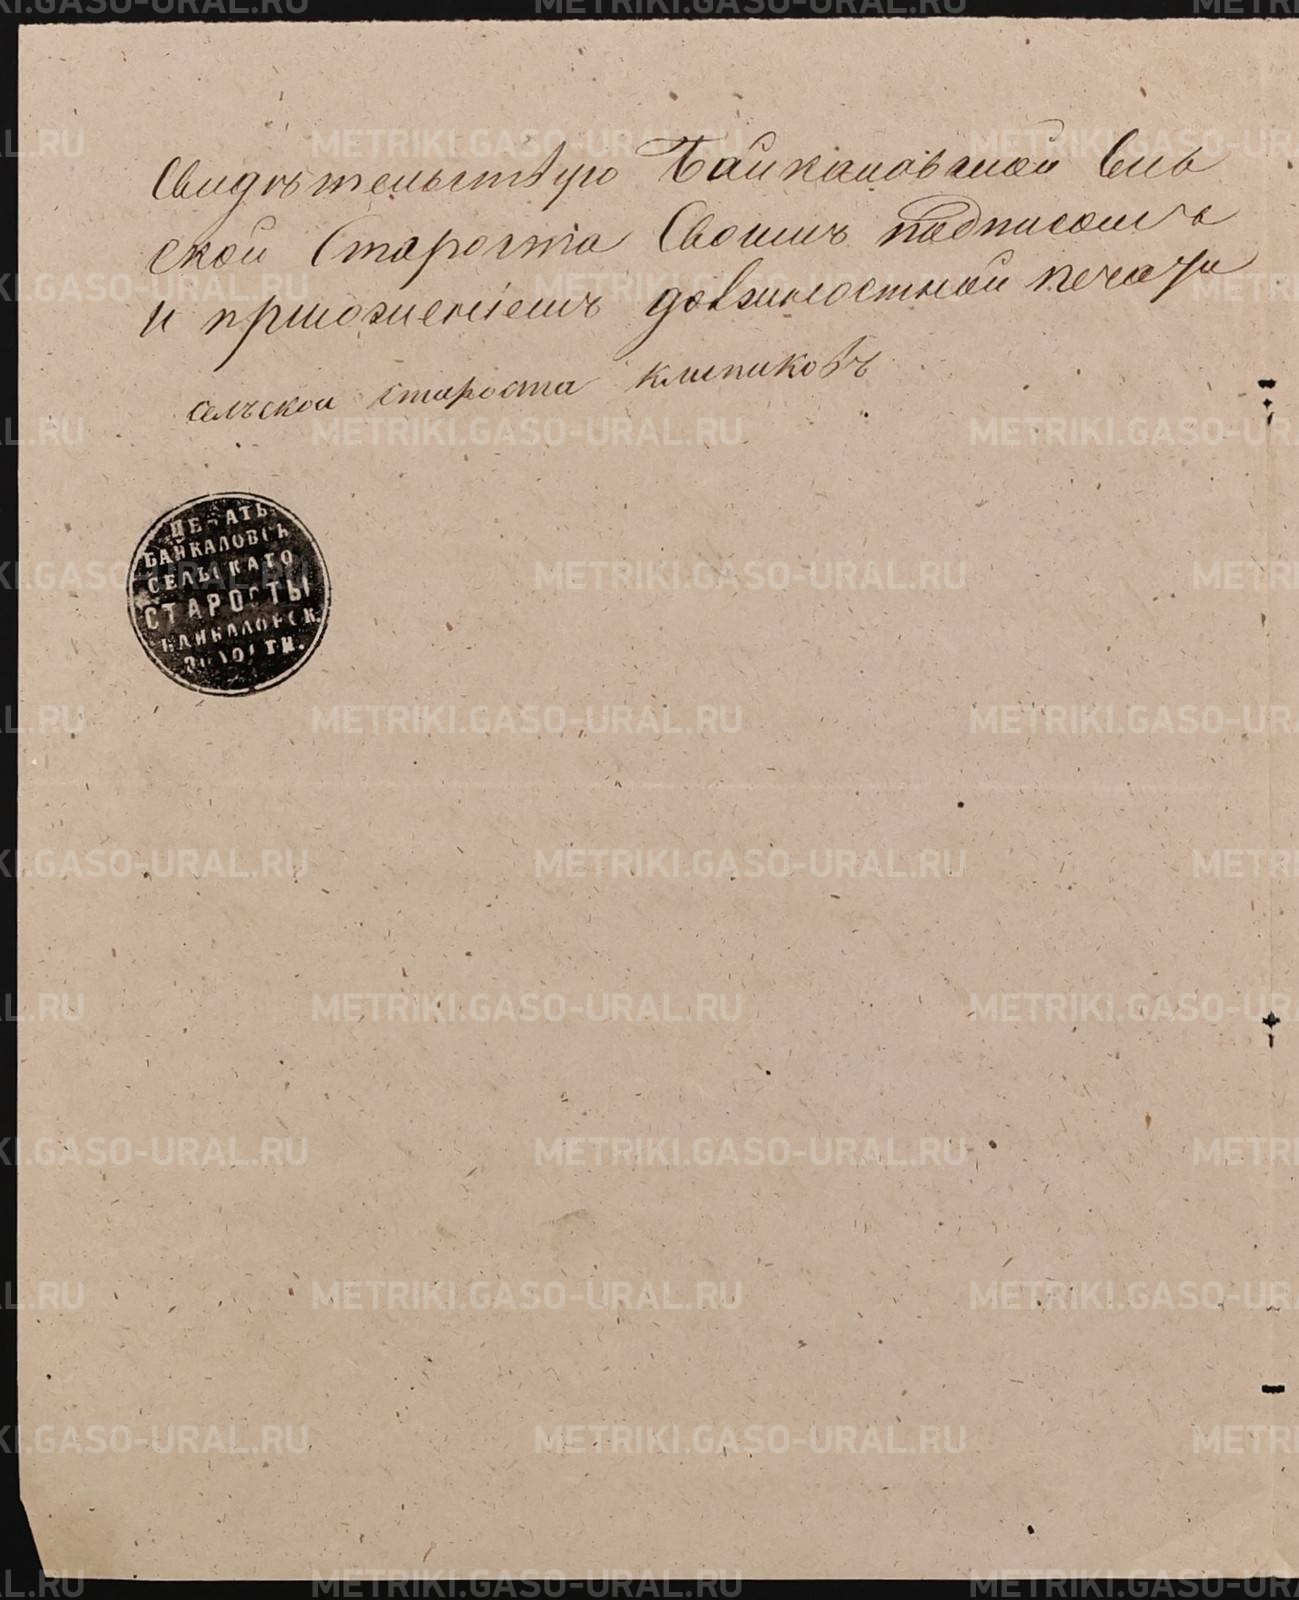 Свидѣтельствую Байкаловской Сель
ской Староста Своимъ подписомъ
и приложеніемъ должностной печати
селъской староста Клепиковъ
ПЕЧАТЬ
БАЙКАЛОВСК
СЕЛЬСКАГО
СТАРОСТЫ
БАЙКАЛОВСК.
ВОЛОСТИ.
METRIKI.GASO-URAL.RU